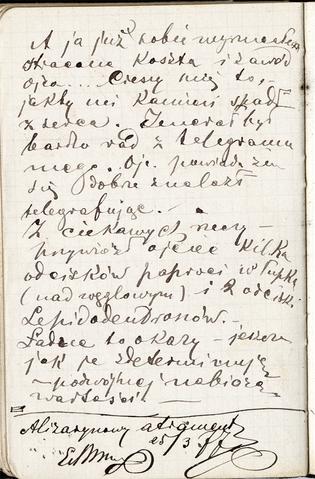 A ja już sobie
stracone koszta i zawód
ojca.... Cieszy mię to,
jakby mi kamień spadł
z serca. Jenerał był
bardzo rad z telegramu
mego. Oj. powiada że
się dobrze znalazł
telegrafując. —
Z ciekawych rzeczy —
przywiózł ojciec kilka
odcisków paproci w łupku
(nad węglowym) i 2 odcisk.
Lepidodendronów. —
Ładne to okazy — jeszcze
jak je zdeterminuję
— podwójnej nabiorą
wartości —
Alizarynowy atrament
25/3